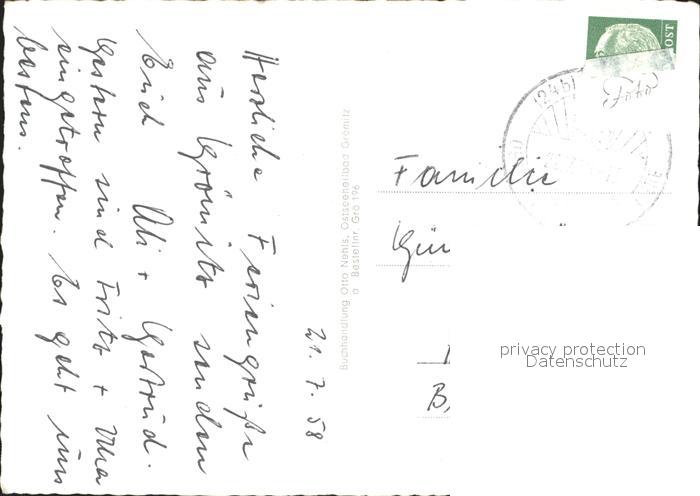 21. 7. 58
Herzliche Feriengrüße
aus Grömitz senden
Euch Ali + Gertrud.
Gestern sind Fritz + Uma
eingetroffen. Es geht uns
bestens.
Buchhandlung Otto Nehls, Ostseeheilbad Grömitz
a Bestellnr. Grö 196
POST
Foto
(24b)
Familie
Gün
B,
privacy protection
Datenschutz